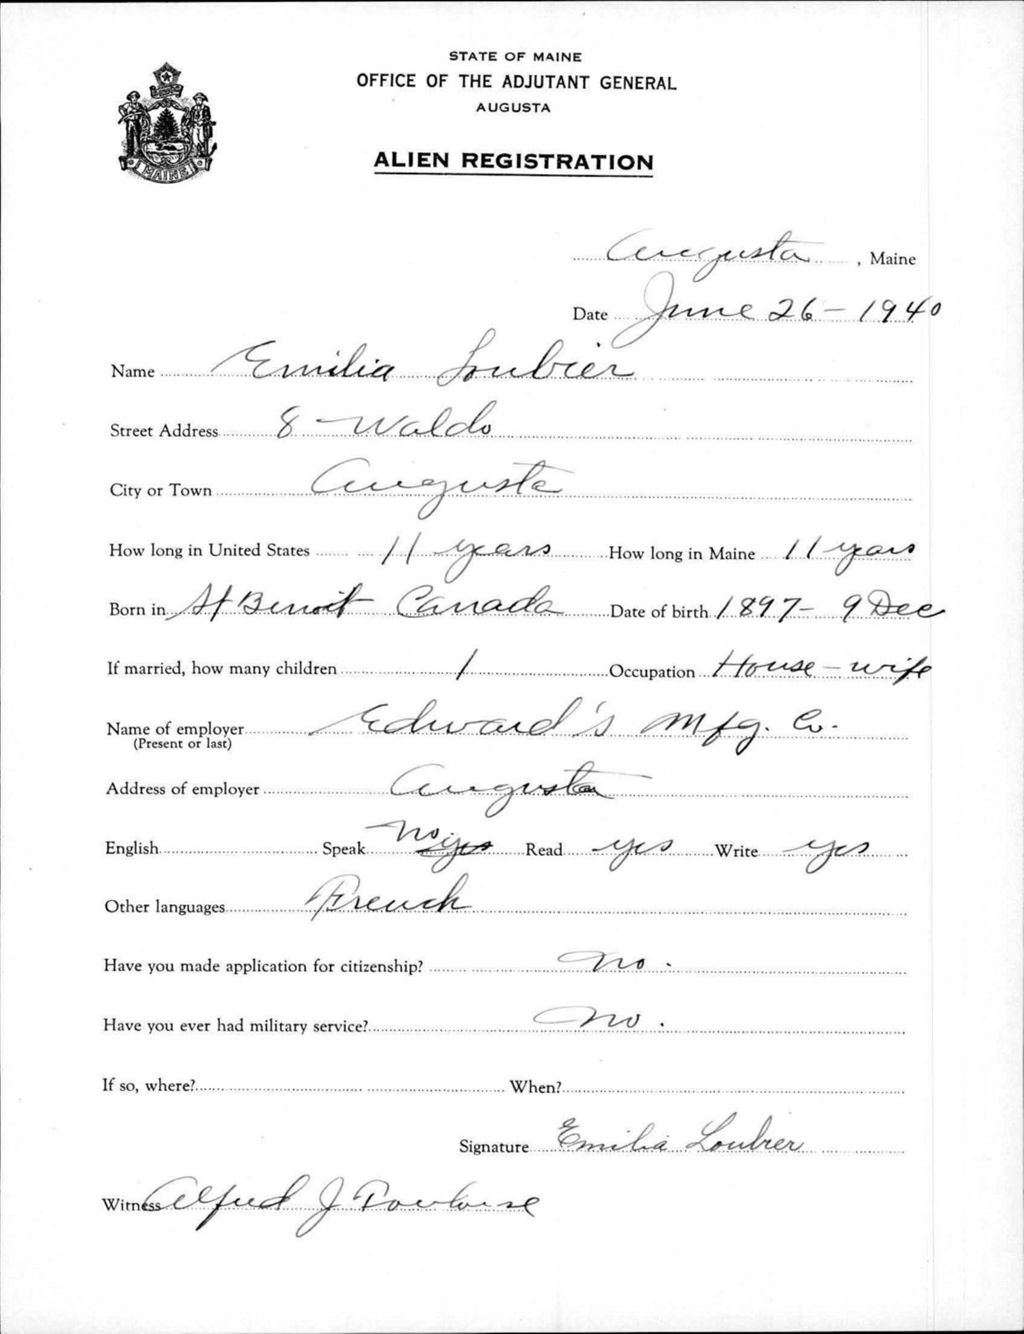 STATE OF MAINE
OFFICE OF THE ADJUTANT GENERAL
AUGUSTA
ALIEN REGISTRATION
MAINE
Augusta, Maine
Date June 26 - 1940
Name Emilia Loubier
Street Address 8 - Waldo
City or Town Augusta
How long in United States 11 years How long in Maine 11 years
Born in St Benoit Canada Date of birth 1897 - 9 Dec
If married, how many children 1 Occupation House - wife
Name of employer Edward's Mfg. Co.
(Present or last)
Address of employer Augusta
English Speak No yes Read yes Write yes
Other languages French
Have you made application for citizenship? no.
Have you ever had military service? no.
If so, where? When?
Signature Emilia Loubier
Witness Alfred J